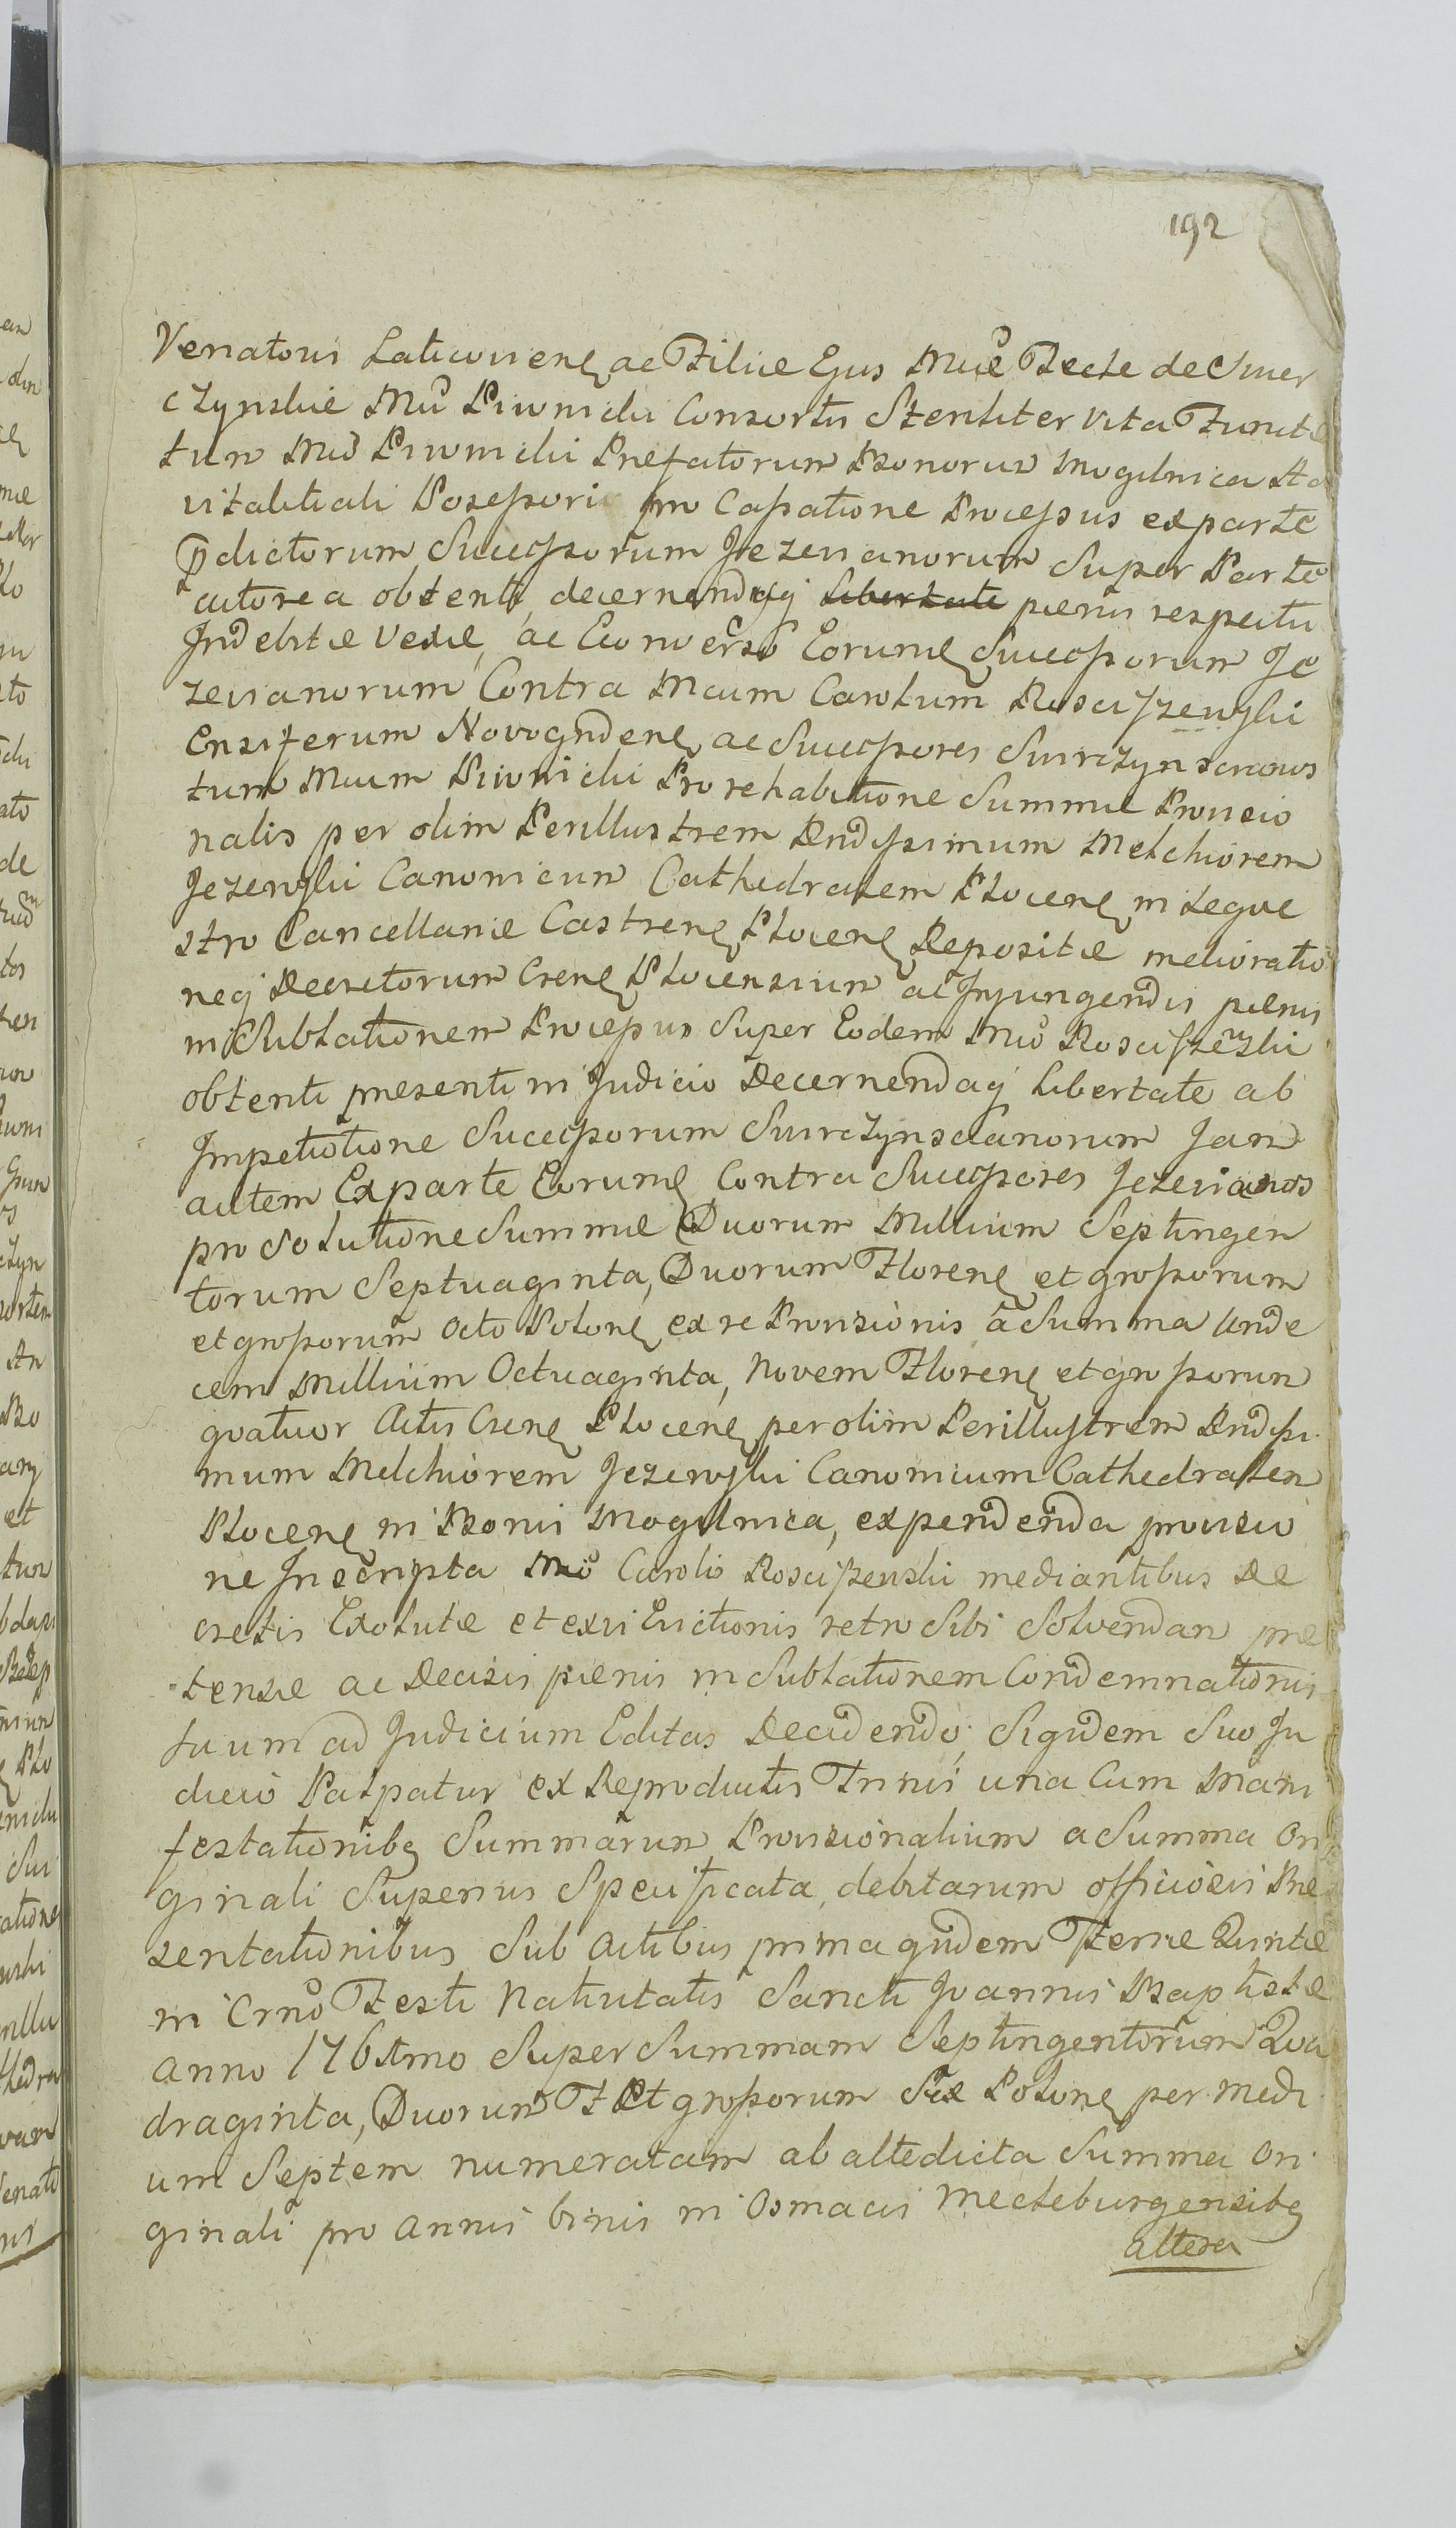 192
Venatoris Laticovienς ac Filiæ Ejus Mcæ Teclæ de Smer
czynskie Mci Piwnicki Consortis Steriliter vita Functæ
tum Mci Piwnicki Præfatorum Bonorum Mogilnica Ad
vitalitiali Possessori pro Cassatione Processus ex parte
p̄dictorum Successorum Jezevianorum Super Parte
actorea obtenti, decernendaq; Libertate pœnis respectu
Indebitæ Vexæ, ac Econverso Eorumς Successorum Je
zevianorum Contra Mcum Carolum Rosciszewski
Ensiferum Novogrdenς ac Successores Swirczynscianos
tum Mcum Piwnicki Pro rehabitione Summæ Provisio
nalis per olim Perillustrem Rndissimum Melchiorem
Jezewski Canonicum Cathedralem Plocenς in Seque
stro Cancellariæ Castrenς Plocenς Depositæ melioratio
neq; Decretorum Csenς Plocensium ac Injungendis pœnis
in Sublationem Processus Super Eodem Mco Rosciszewski
obtenti præsenti in Judicio Decernendaq; Libertate ab
Impetitione Successorum Swirczynscianorum Jam
autem Exparte Eorumς Contra Successores Jezevianos
pro Solutione Summæ Duorum Millium Septingen
torum Septuaginta, Duorum Florenς et grossorum
et grossorum octo Polonς ex re Provisionis a Summa Unde
cem Millium Octuaginta, Novem Florenς et grossorum
quatuor Actis Csenς Plocenς per olim Perillustrem Rndissi
mum Melchiorem Jezewski Canonicum Cathedralem
Plocenς in Bonis Mogilnica, expendenda provisio
ne Inscripta Mco Carolo Rosciszewski mediantibus De
cretis Exolutæ et exvi Evictionis retro Sibi Solvendam præ
tensæ ac Decisis pœnis in Sublationem Condemnationis
suum ad Judicium Editas Decidendo; Siquidem Suo Ju
dicio Patpatur ex Reproductis Trinis una Cum Mani
festationibς Summarum Provisionalium a Summa Ori
ginali Superius Specificata, debitarum officiosis Præ
sentationibus Sub Actibus prima quidem Feriæ Quintæ
in Crno Festi Nativitatis Sancti Joannis Baptistæ
Anno 176 Super Summam Septingentorum Qua
draginta, Duorum F Et grossorum Sex Polonς per medi
um Septem numeratam ab altedicta Summa Ori
ginali pro Annis binis in Osmacis Mecleburgensibς
altera